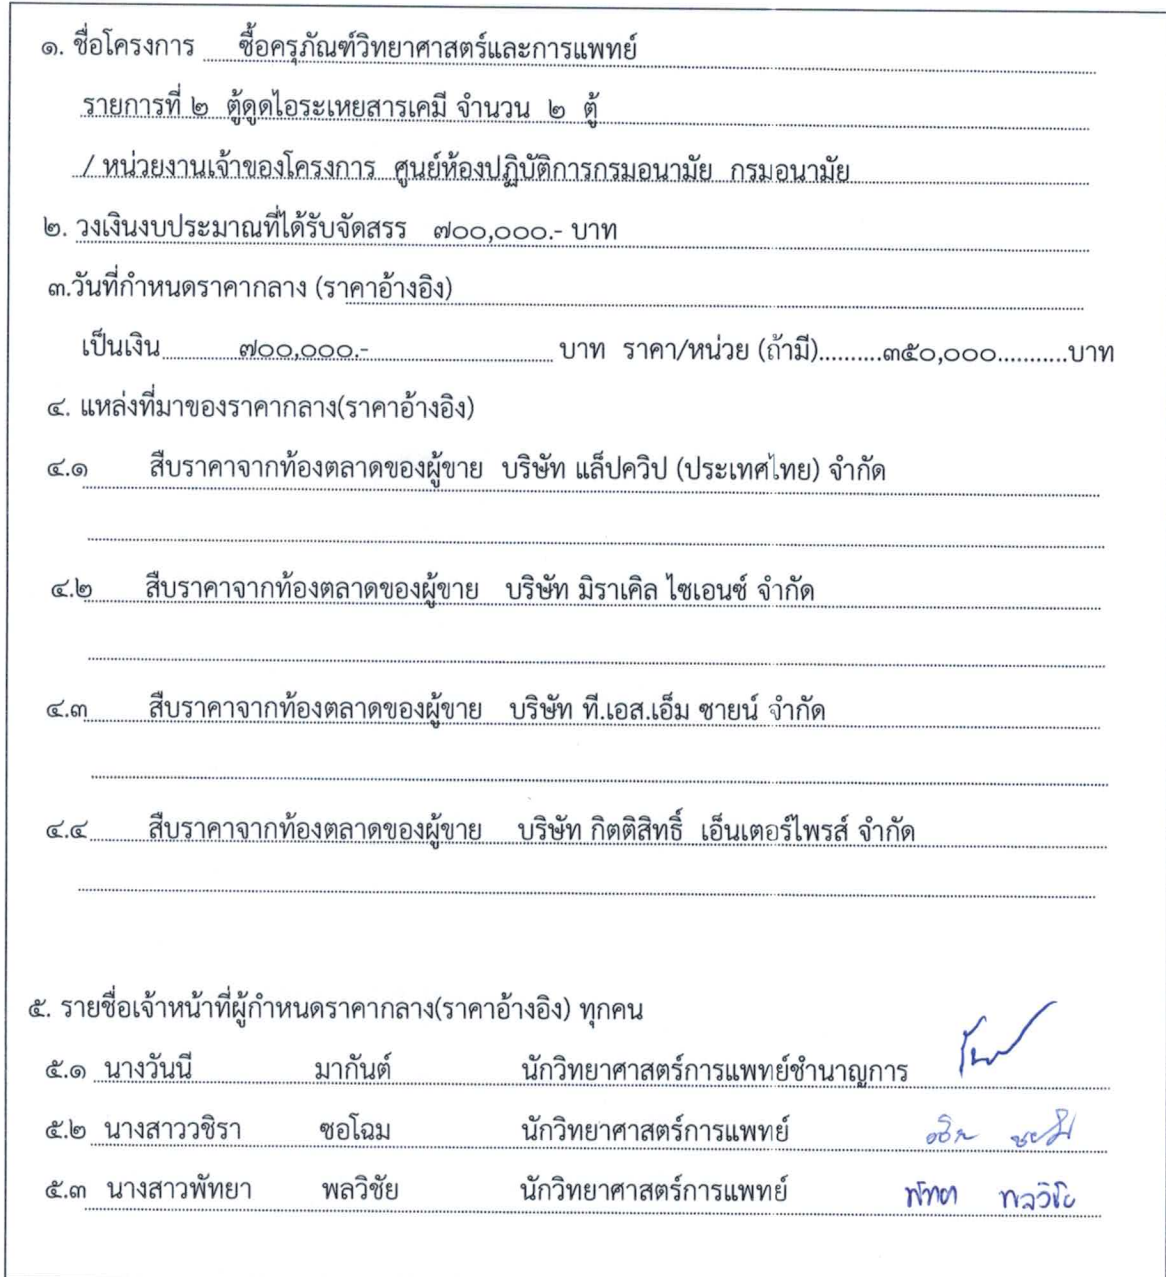 ๑. ชื่อโครงการ ซื้อครุภัณฑ์วิทยาศาสตร์และการแพทย์
รายการที่ ๒ ตู้ดูดไอระเหยสารเคมี จำนวน ๒ ตู้
/ หน่วยงานเจ้าของโครงการ ศูนย์ห้องปฏิบัติการกรมอนามัย กรมอนามัย
๒. วงเงินงบประมาณที่ได้รับจัดสรร ๗๐๐,๐๐๐.- บาท
๓.วันที่กำหนดราคากลาง (ราคาอ้างอิง)
เป็นเงิน ๗๐๐,๐๐๐.- บาท ราคา/หน่วย (ถ้ามี)..........๓๕๐,๐๐๐...........บาท
๔. แหล่งที่มาของราคากลาง(ราคาอ้างอิง)
๔.๑ สืบราคาจากท้องตลาดของผู้ขาย บริษัท แล็ปควิป (ประเทศไทย) จำกัด
๔.๒ สืบราคาจากท้องตลาดของผู้ขาย บริษัท มิราเคิล ไซเอนซ์ จำกัด
๔.๓ สืบราคาจากท้องตลาดของผู้ขาย บริษัท ที.เอส.เอ็ม ซายน์ จำกัด
๔.๔ สืบราคาจากท้องตลาดของผู้ขาย บริษัท กิตติสิทธิ์ เอ็นเตอร์ไพรส์ จำกัด
๕. รายชื่อเจ้าหน้าที่ผู้กำหนดราคากลาง(ราคาอ้างอิง) ทุกคน
๕.๑ นางวันนี มากันต์ นักวิทยาศาสตร์การแพทย์ชำนาญการ
๕.๒ นางสาววชิรา ซอโฉม นักวิทยาศาสตร์การแพทย์
๕.๓ นางสาวพัทยา พลวิชัย นักวิทยาศาสตร์การแพทย์ พัทยา พลวิชัย